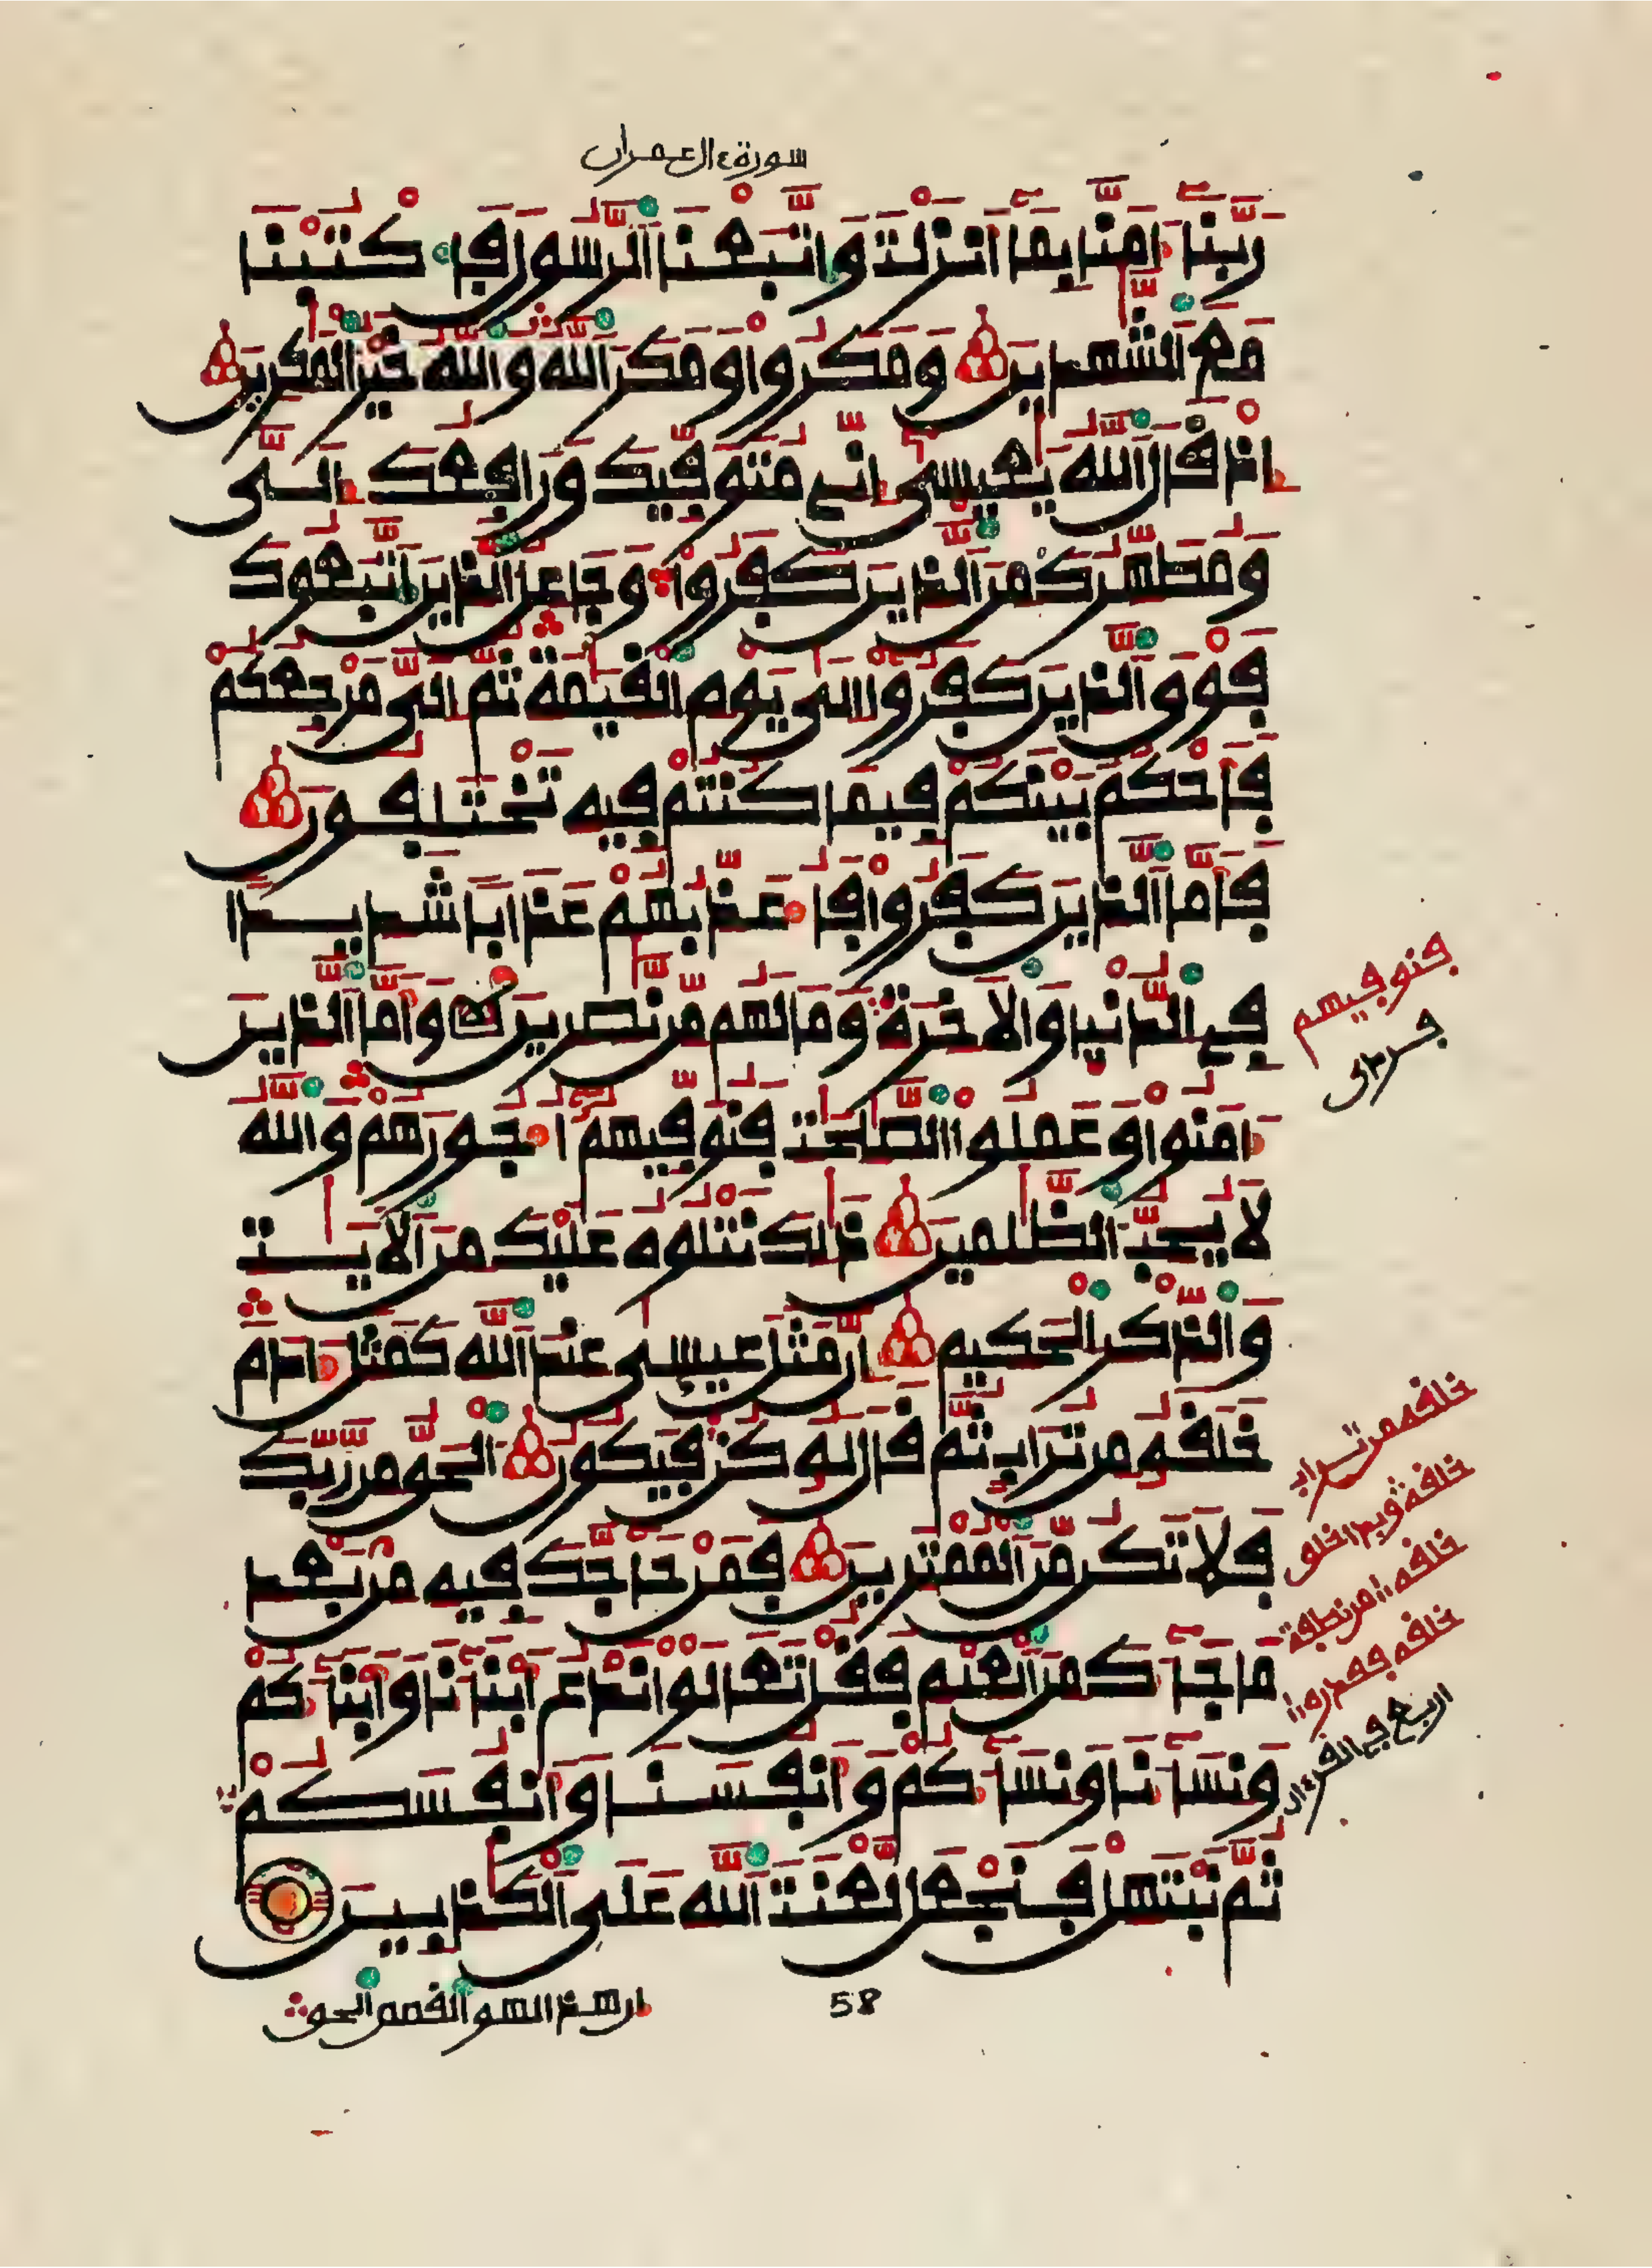 سورة ءال عمران
رَبَّنَا ءَامَنَّا بِمَا أَنزَلْتَ وَاتَّبَعْنَا الرَّسُولَ فَاكْتُبْنَا
مَعَ الشَّٰهِدِينَ وَمَكَرُوا وَمَكَرَ اللَّهُ وَاللَّهُ خَيْرُ الْمَٰكِرِينَ
إِذْ قَالَ اللَّهُ يَٰعِيسَىٰ إِنِّي مُتَوَفِّيكَ وَرَافِعُكَ إِلَيَّ
وَمُطَهِّرُكَ مِنَ الَّذِينَ كَفَرُوا وَجَاعِلُ الَّذِينَ اتَّبَعُوكَ
فَوْقَ الَّذِينَ كَفَرُوا إِلَىٰ يَوْمِ الْقِيَٰمَةِ ثُمَّ إِلَيَّ مَرْجِعُكُمْ
فَأَحْكُمُ بَيْنَكُمْ فِيمَا كُنتُمْ فِيهِ تَخْتَلِفُونَ
فَأَمَّا الَّذِينَ كَفَرُوا فَأُعَذِّبُهُمْ عَذَابًا شَدِيدًا
فِي الدُّنْيَا وَالْأَخِرَةِ وَمَا لَهُم مِّن نَّٰصِرِينَ وَأَمَّا الَّذِينَ
ءَامَنُوا وَعَمِلُوا الصَّٰلِحَٰتِ فَنُوَفِّيهِمُ أُجُورَهُمْ وَاللَّهُ
لَا يُحِبُّ الظَّٰلِمِينَ ذَٰلِكَ نَتْلُوهُ عَلَيْكَ مِنَ الْأَيَٰتِ
وَالذِّكْرِ الْحَكِيمِ إِنَّ مَثَلَ عِيسَىٰ عِندَ اللَّهِ كَمَثَلِ ءَادَمَ
خَلَقَهُ مِن تُرَابٍ ثُمَّ قَالَ لَهُ كُن فَيَكُونُ الْحَقُّ مِن رَّبِّكَ
فَلَا تَكُن مِّنَ الْمُمْتَرِينَ فَمَنْ حَاجَّكَ فِيهِ مِن بَعْدِ
مَا جَاءَكَ مِنَ الْعِلْمِ فَقُلْ تَعَالَوْا نَدْعُ أَبْنَاءَنَا وَأَبْنَاءَكُمْ
وَنِسَاءَنَا وَنِسَاءَكُمْ وَأَنفُسَنَا وَأَنفُسَكُمْ
ثُمَّ نَبْتَهِلْ فَنَجْعَل لَّعْنَتَ اللَّهِ عَلَى الْكَٰذِبِينَ
58
إن هذا لهو القصص الحق
فنوفيهم
خلقه من تراب
خلقه من نطفة
خلقه فقدره